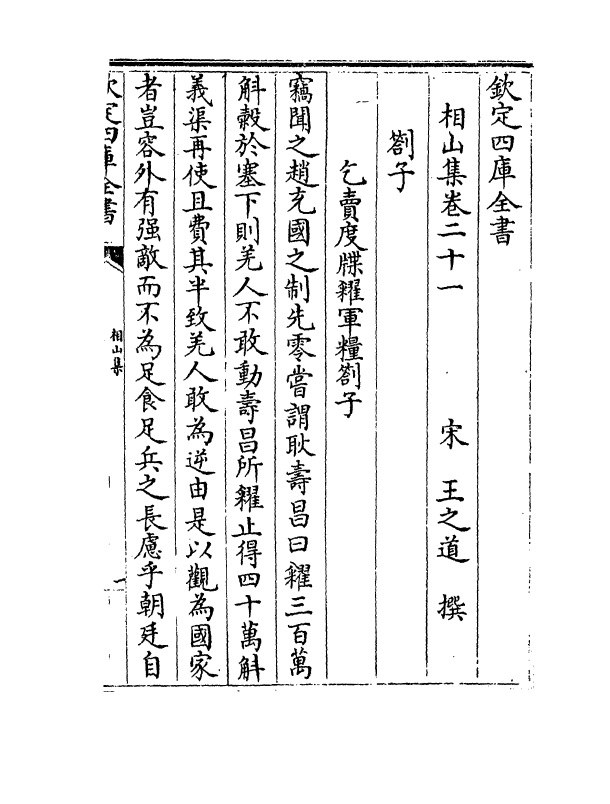 欽定四庫全書
相山集卷二十一 宋 王之道 撰
劄子
乞賣度牒糴軍糧劄子
竊聞之趙充國之制先零嘗謂耿壽昌曰糴三百萬
斛穀於塞下則羌人不敢動壽昌所糴止得四十萬斛
義渠再使且費其半致羌人敢為逆由是以觀為國家
者豈容外有强敵而不為足食足兵之長慮乎朝廷自
欽定四庫全書
相山集
一